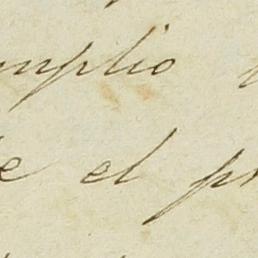 mplio
e el pr